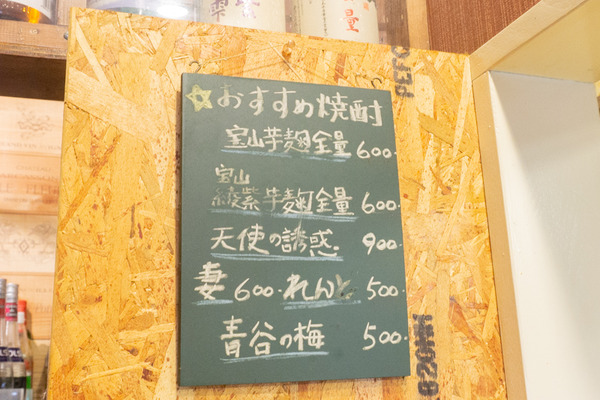 ☆おすすめ焼酎
宝山芋麹全量 600.
宝山
綾紫芋麹全量 600.
天使の誘惑. 900.
妻 600. れんと 500.
青谷の梅 500.